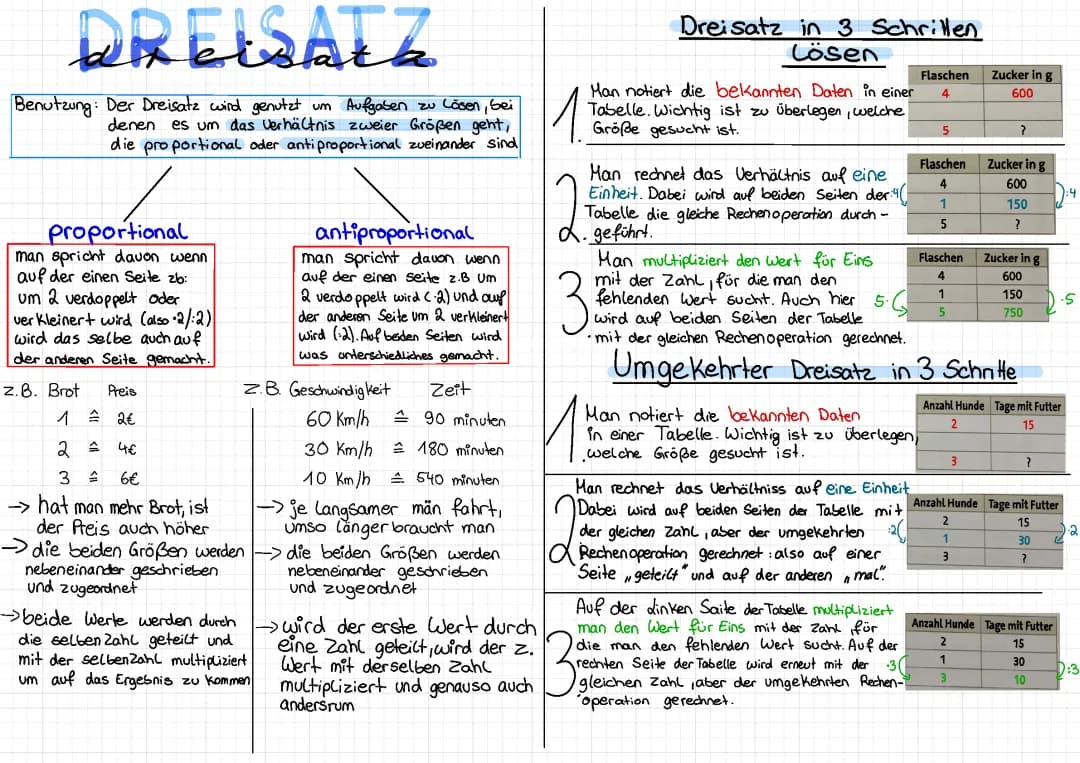 DREISATZ
dreisatz
Benutzung: Der Dreisatz wird genutzt um Aufgaben zu Lösen, bei
denen es um das Verhältnis zweier Größen geht,
die proportional oder antiproportional zueinander sind
proportional
man spricht davon wenn
auf der einen Seite zb:
um 2 verdoppelt oder
verkleinert wird (also ·2/:2)
wird das selbe auch auf
der anderen Seite gemacht.
z.B. Brot Preis
1 ≙ 2€
2 ≙ 4€
3 ≙ 6€
-> hat man mehr Brot, ist
der Preis auch höher
-> die beiden Größen werden
nebeneinander geschrieben
und zugeordnet
-> beide Werte werden durch
die selben Zahl geteilt und
mit der selben Zahl multipliziert
um auf das Ergebnis zu kommen
antiproportional
man spricht davon wenn
auf der einen Seite z.B um
2 verdoppelt wird (·2) und auf
der anderen Seite um 2 verkleinert
wird (:2). Auf beiden Seiten wird
was unterschiedliches gemacht.
z.B. Geschwindigkeit Zeit
60 Km/h ≙ 90 minuten
30 Km/h ≙ 180 minuten
10 Km/h ≙ 540 minuten
-> je langsamer män fährt,
umso länger braucht man
-> die beiden Größen werden
nebeneinander geschrieben
und zugeordnet
-> wird der erste Wert durch
eine Zahl geteilt, wird der z.
Wert mit derselben Zahl
multipliziert und genauso auch
andersrum
Dreisatz in 3 Schritten
Lösen
1. Man notiert die bekannten Daten in einer
Tabelle. Wichtig ist zu überlegen, welche
Größe gesucht ist.
Flaschen Zucker in g
4 600
5 ?
2. Man rechnet das Verhältnis auf eine
Einheit. Dabei wird auf beiden Seiten der
Tabelle die gleiche Rechenoperation durch-
geführt.
Flaschen Zucker in g
4 600
:4 1 150 :4
5 ?
3. Man multipliziert den Wert für Eins
mit der Zahl, für die man den
fehlenden Wert sucht. Auch hier
wird auf beiden Seiten der Tabelle
mit der gleichen Rechenoperation gerechnet.
Flaschen Zucker in g
4 600
1 150
5· 5 750 ·5
Umgekehrter Dreisatz in 3 Schritte
1. Man notiert die bekannten Daten
in einer Tabelle. Wichtig ist zu überlegen,
welche Größe gesucht ist.
Anzahl Hunde Tage mit Futter
2 15
3 ?
2 Man rechnet das Verhältniss auf eine Einheit
Dabei wird auf beiden Seiten der Tabelle mit
der gleichen Zahl, aber der umgekehrten
Rechenoperation gerechnet: also auf einer
Seite „geteilt" und auf der anderen „mal".
Anzahl Hunde Tage mit Futter
2 15
:2 1 30 ·2
3 ?
3. Auf der linken Saite der Tabelle multipliziert
man den Wert für Eins mit der Zahl, für
die man den fehlenden Wert sucht. Auf der
rechten Seite der Tabelle wird erneut mit der
gleichen Zahl, aber der umgekehrten Rechen-
operation gerechnet.
Anzahl Hunde Tage mit Futter
2 15
1 30
·3 3 10 :3